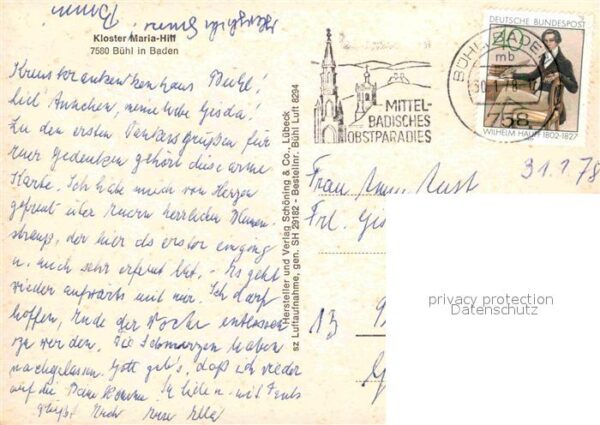 Kloster Maria-Hilf
7580 Bühl in Baden
Krankenhaus Bühl!
Lieb Annchen, meine liebe Gisela!
Zu den ersten Dankesgrüßen für
Euer Gedenken gehört diese arme
Karte. Ich habe mich von Herzen
gefreut über Euern herrlichen Blumen-
strauß, der hier als erster einging
u. auch sehr erfreut hat. - Es geht
wieder aufwärts mit mir. Ich darf
hoffen, Ende der Woche entlassen
zu werden. Die Schmerzen haben
nachgelassen. Gott geb's, daß ich wieder
auf die Beine komme.
grüßt Euch Eure Ella
Hersteller und Verlag Schöning & Co., Lübeck
sz Luftaufnahme, gen. SH 29182 - Bestellnr. Bühl Luft 8294
MITTEL-
BADISCHES
OBSTPARADIES
BÜHL, BADEN
mb
DEUTSCHE BUNDESPOST
40
758
WILHELM HAUFF 1802-1827
31.1.78
Frau Anna
Frl.
13
privacy protection
Datenschutz